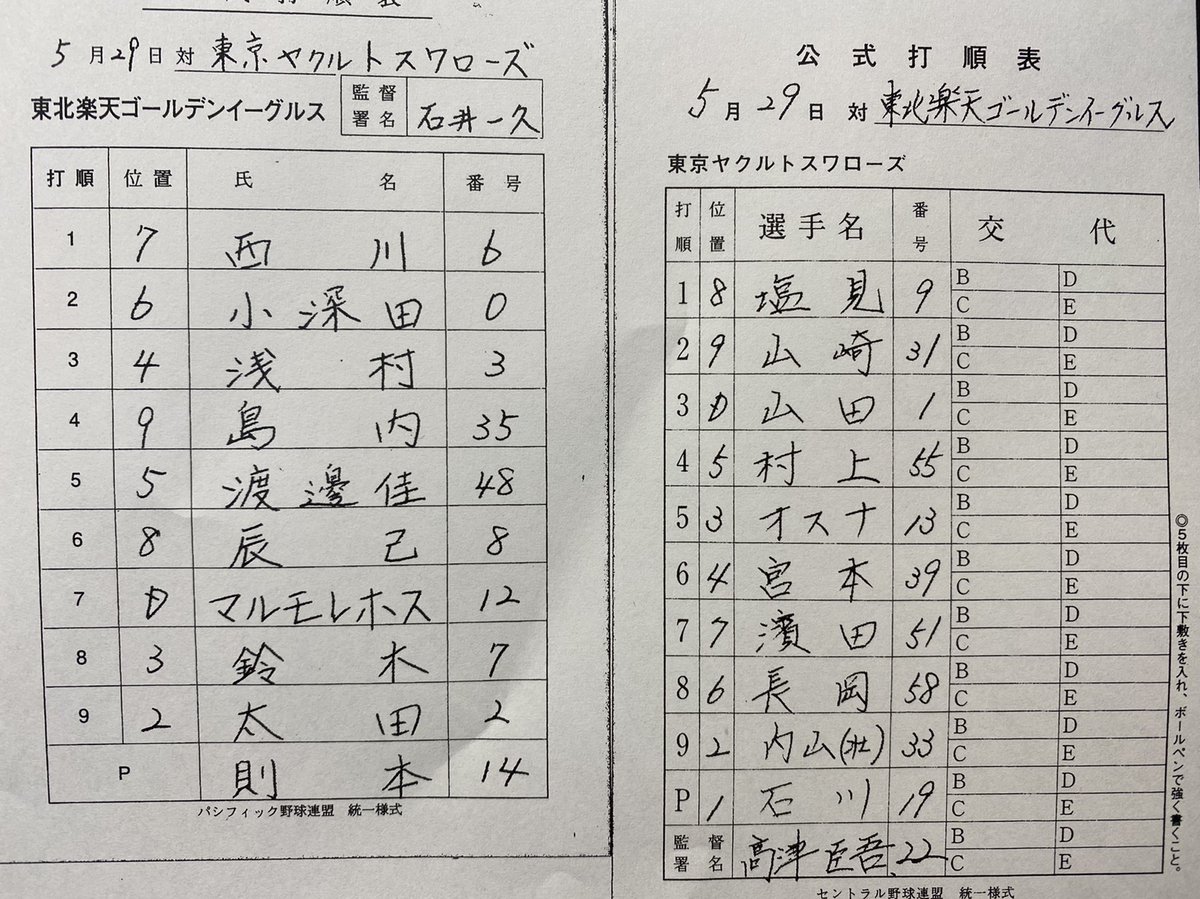 打順表
5月29日 対 東京ヤクルトスワローズ
東北楽天ゴールデンイーグルス 監督署名 石井一久
打順 位置 氏名 番号
1 7 西川 6
2 6 小深田 0
3 4 浅村 3
4 9 島内 35
5 5 渡邊佳 48
6 8 辰己 8
7 D マルモレホス 12
8 3 鈴木 7
9 2 太田 2
P 則本 14
パシフィック野球連盟 統一様式
公式打順表
5月29日 対 東北楽天ゴールデンイーグルス
東京ヤクルトスワローズ
打順 位置 選手名 番号 交代
1 8 塩見 9 B D
C E
2 9 山崎 31 B D
C E
3 D 山田 1 B D
C E
4 5 村上 55 B D
C E
5 3 オスナ 13 B D
C E
6 4 宮本 39 B D
C E
7 7 濱田 51 B D
C E
8 6 長岡 58 B D
C E
9 2 内山(壮) 33 B D
C E
P 1 石川 19 B D
C E
監督署名 高津臣吾 22 B D
C E
セントラル野球連盟 統一様式
◎5枚目の下に下敷きを入れ、ボールペンで強く書くこと。